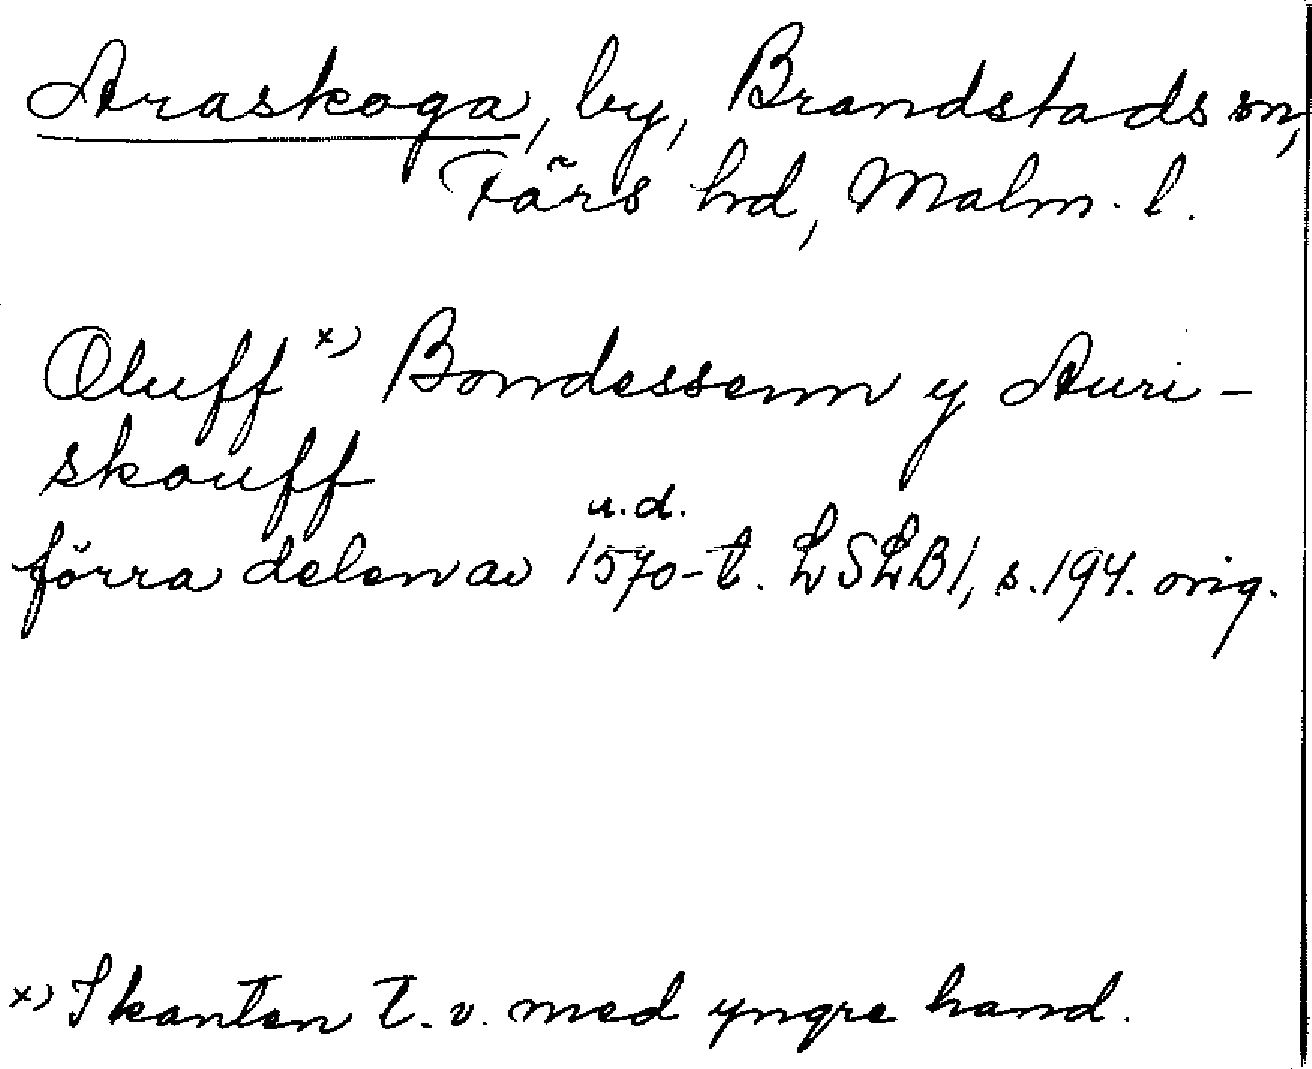 Araskoga, by, Brandstads sn,
Färs hd, Malm. l.
Oluff x) Bondessenn y Auri-
skouff
u.d.
förra delen av 1570-t. LSLB1, s. 194. orig.
x) I kanten t. v. med yngre hand.